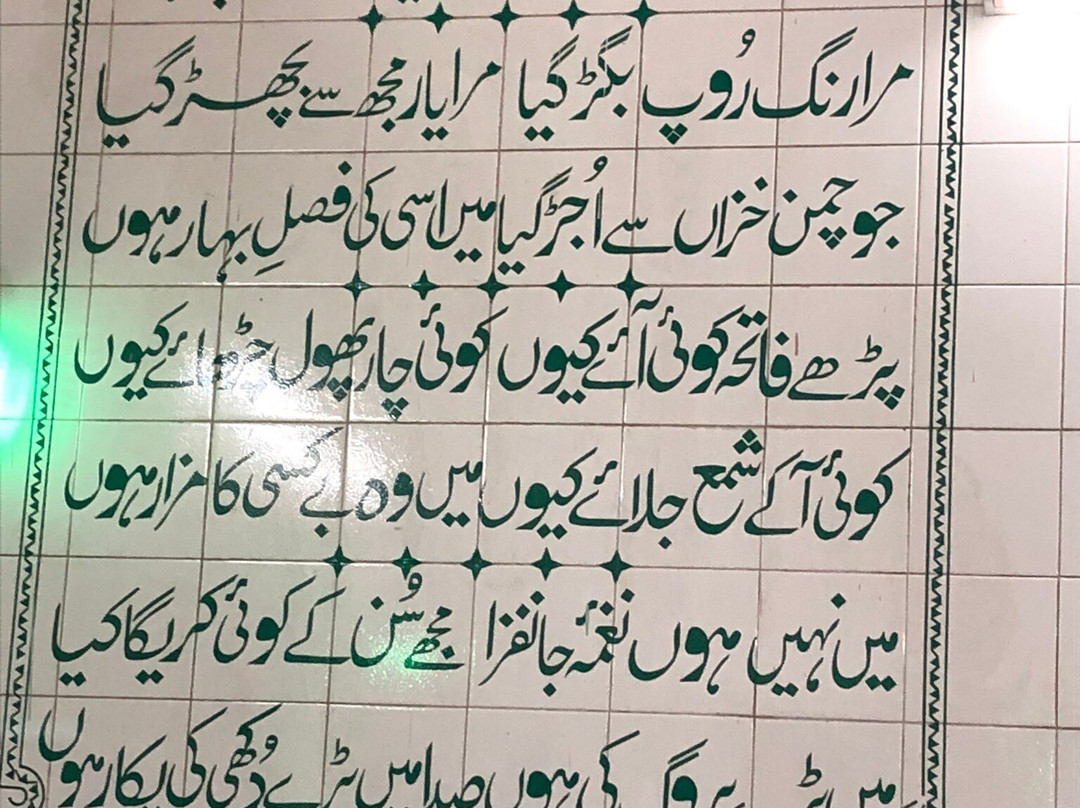 مرا رنگ رُوپ بگڑ گیا مرا یار مجھ سے بچھڑ گیا
جو چمن خزاں سے اُجڑ گیا میں اسی کی فصلِ بہار ہوں
پڑھے فاتحہ کوئی آئے کیوں کوئی چار پھول چڑھائے کیوں
کوئی آ کے شمع جلائے کیوں میں وہ بے کسی کا مزار ہوں
میں نہیں ہوں نغمۂ جانفزا مجھے سُن کے کوئی کریگا کیا
میں بڑے بروگ کی ہوں صدا میں بڑے دُکھی کی پکار ہوں